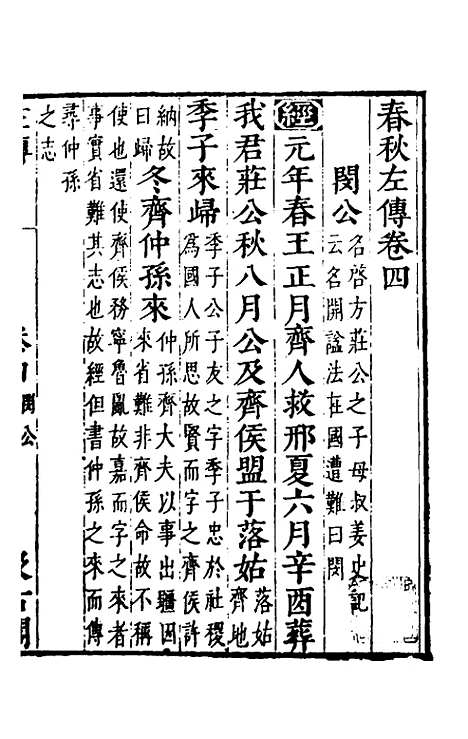 春秋左傳卷四
閔公 名啓方莊公之子母叔姜史記
云名開諡法在國遭難曰閔
經元年春王正月齊人救邢夏六月辛酉葬
我君莊公秋八月公及齊侯盟于落姑 落姑
齊地
季子來歸 季子公子友之字季子忠於社稷
爲國人所思故賢而字之齊侯許
納故
曰歸 冬齊仲孫來 仲孫齊大夫以事出疆因
來省難非齊侯命故不稱
使也還使齊侯務寧魯亂故嘉而字之來者
事實省難其志也故經但書仲孫之來而傳
尋仲孫
之志
閔公